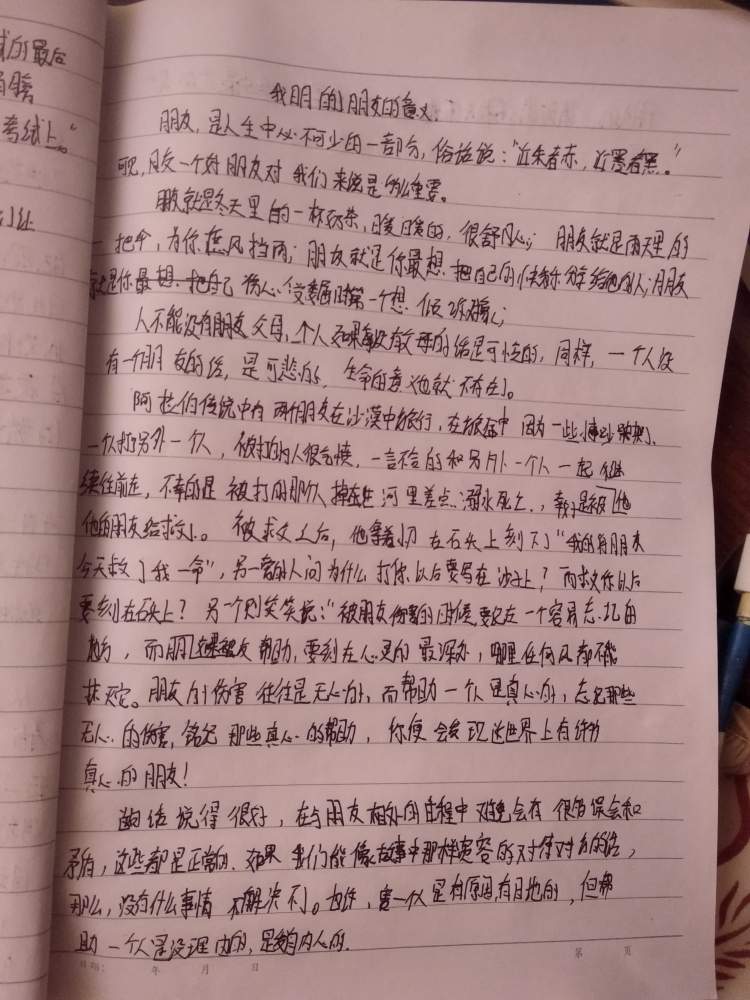 试的最后
考试上。"
我明的朋友的意义.
朋友，是人生中必不可少的一部分，俗话说："近朱者赤，近墨者黑。"
可见，一个好朋友对我们来说是多么重要。
朋友就是冬天里的一杯奶茶，暖暖的，很舒心；朋友就是雨天里的
一把伞，为你遮风挡雨；朋友就是你最想把自己的快乐分享给他的人；朋友
就是你最想把自己伤心 第一个想
人不能没有朋友父母，个人如果没有父母的话是可怜的，同样，一个人没
有一个朋友的话，是可悲的，生命的意义也就不存在。
阿拉伯传说中有两个朋友在沙漠中旅行，在旅途中因为一些事吵架，
一个人打了另外一个人，被打的人很气愤，一言不合的和另外一个人一起继
续往前走，不幸的是被打的那个人掉在河里差点溺水死亡，幸好是被他
他的朋友给救了。被救之后，他拿着小刀在石头上刻下了"我的好朋友
今天救了我一命"，另一旁的人问为什么打你以后要写在沙子上？而救你以后
要刻在石头上？另一个则笑笑说："被朋友伤害的时候，要记在一个容易忘记的
地方，而朋友帮助，要刻在心里的最深处，哪里任何风都不能
抹灭它。朋友的伤害往往是无心的，而帮助一个是真心的，忘记那些
无心的伤害，铭记那些真心的帮助，你便会发现这世界上有许多
真心的朋友！
话说得很好，在与朋友相处的过程中难免会有很多误会和
矛盾，这些都是正常的。如果我们能像故事中那样宽容的对待对方的话，
那么，没有什么事情解决不了。也许，害一个人是有原因，有目地的，但帮
助一个人是没理由的，是发自内心的.
年 月 日
第 页